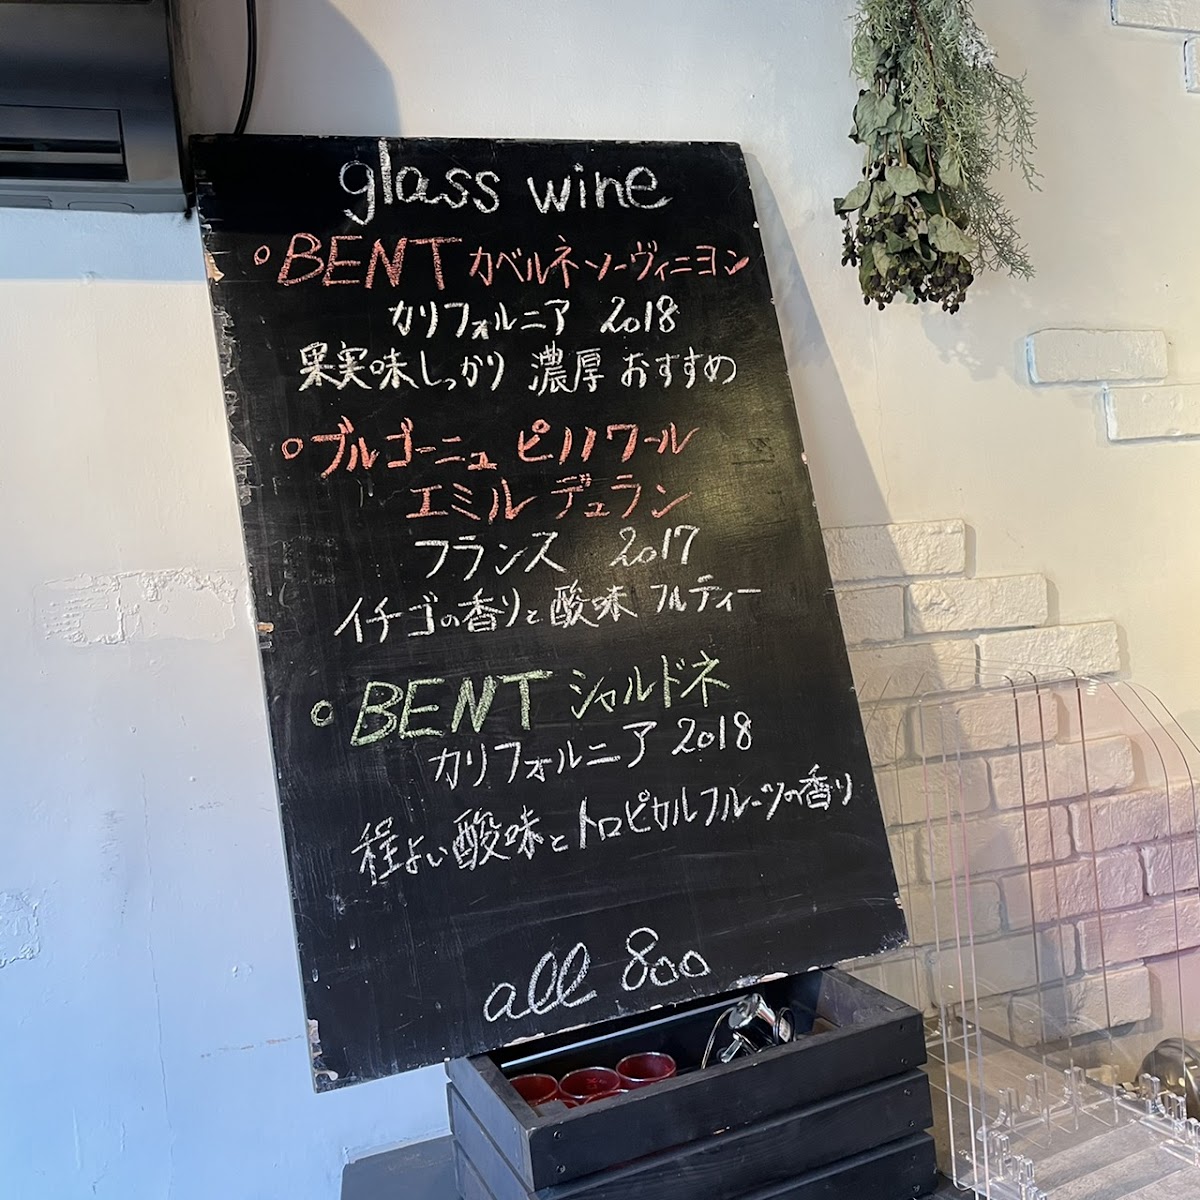 glass wine
○BENT カベルネソーヴィニヨン
カリフォルニア 2018
果実味しっかり 濃厚 おすすめ
○ブルゴーニュ ピノノワール
エミルデュラン
フランス 2017
イチゴの香りと酸味 フルティー
○BENT シャルドネ
カリフォルニア 2018
程よい酸味とトロピカルフルーツの香り
all 800